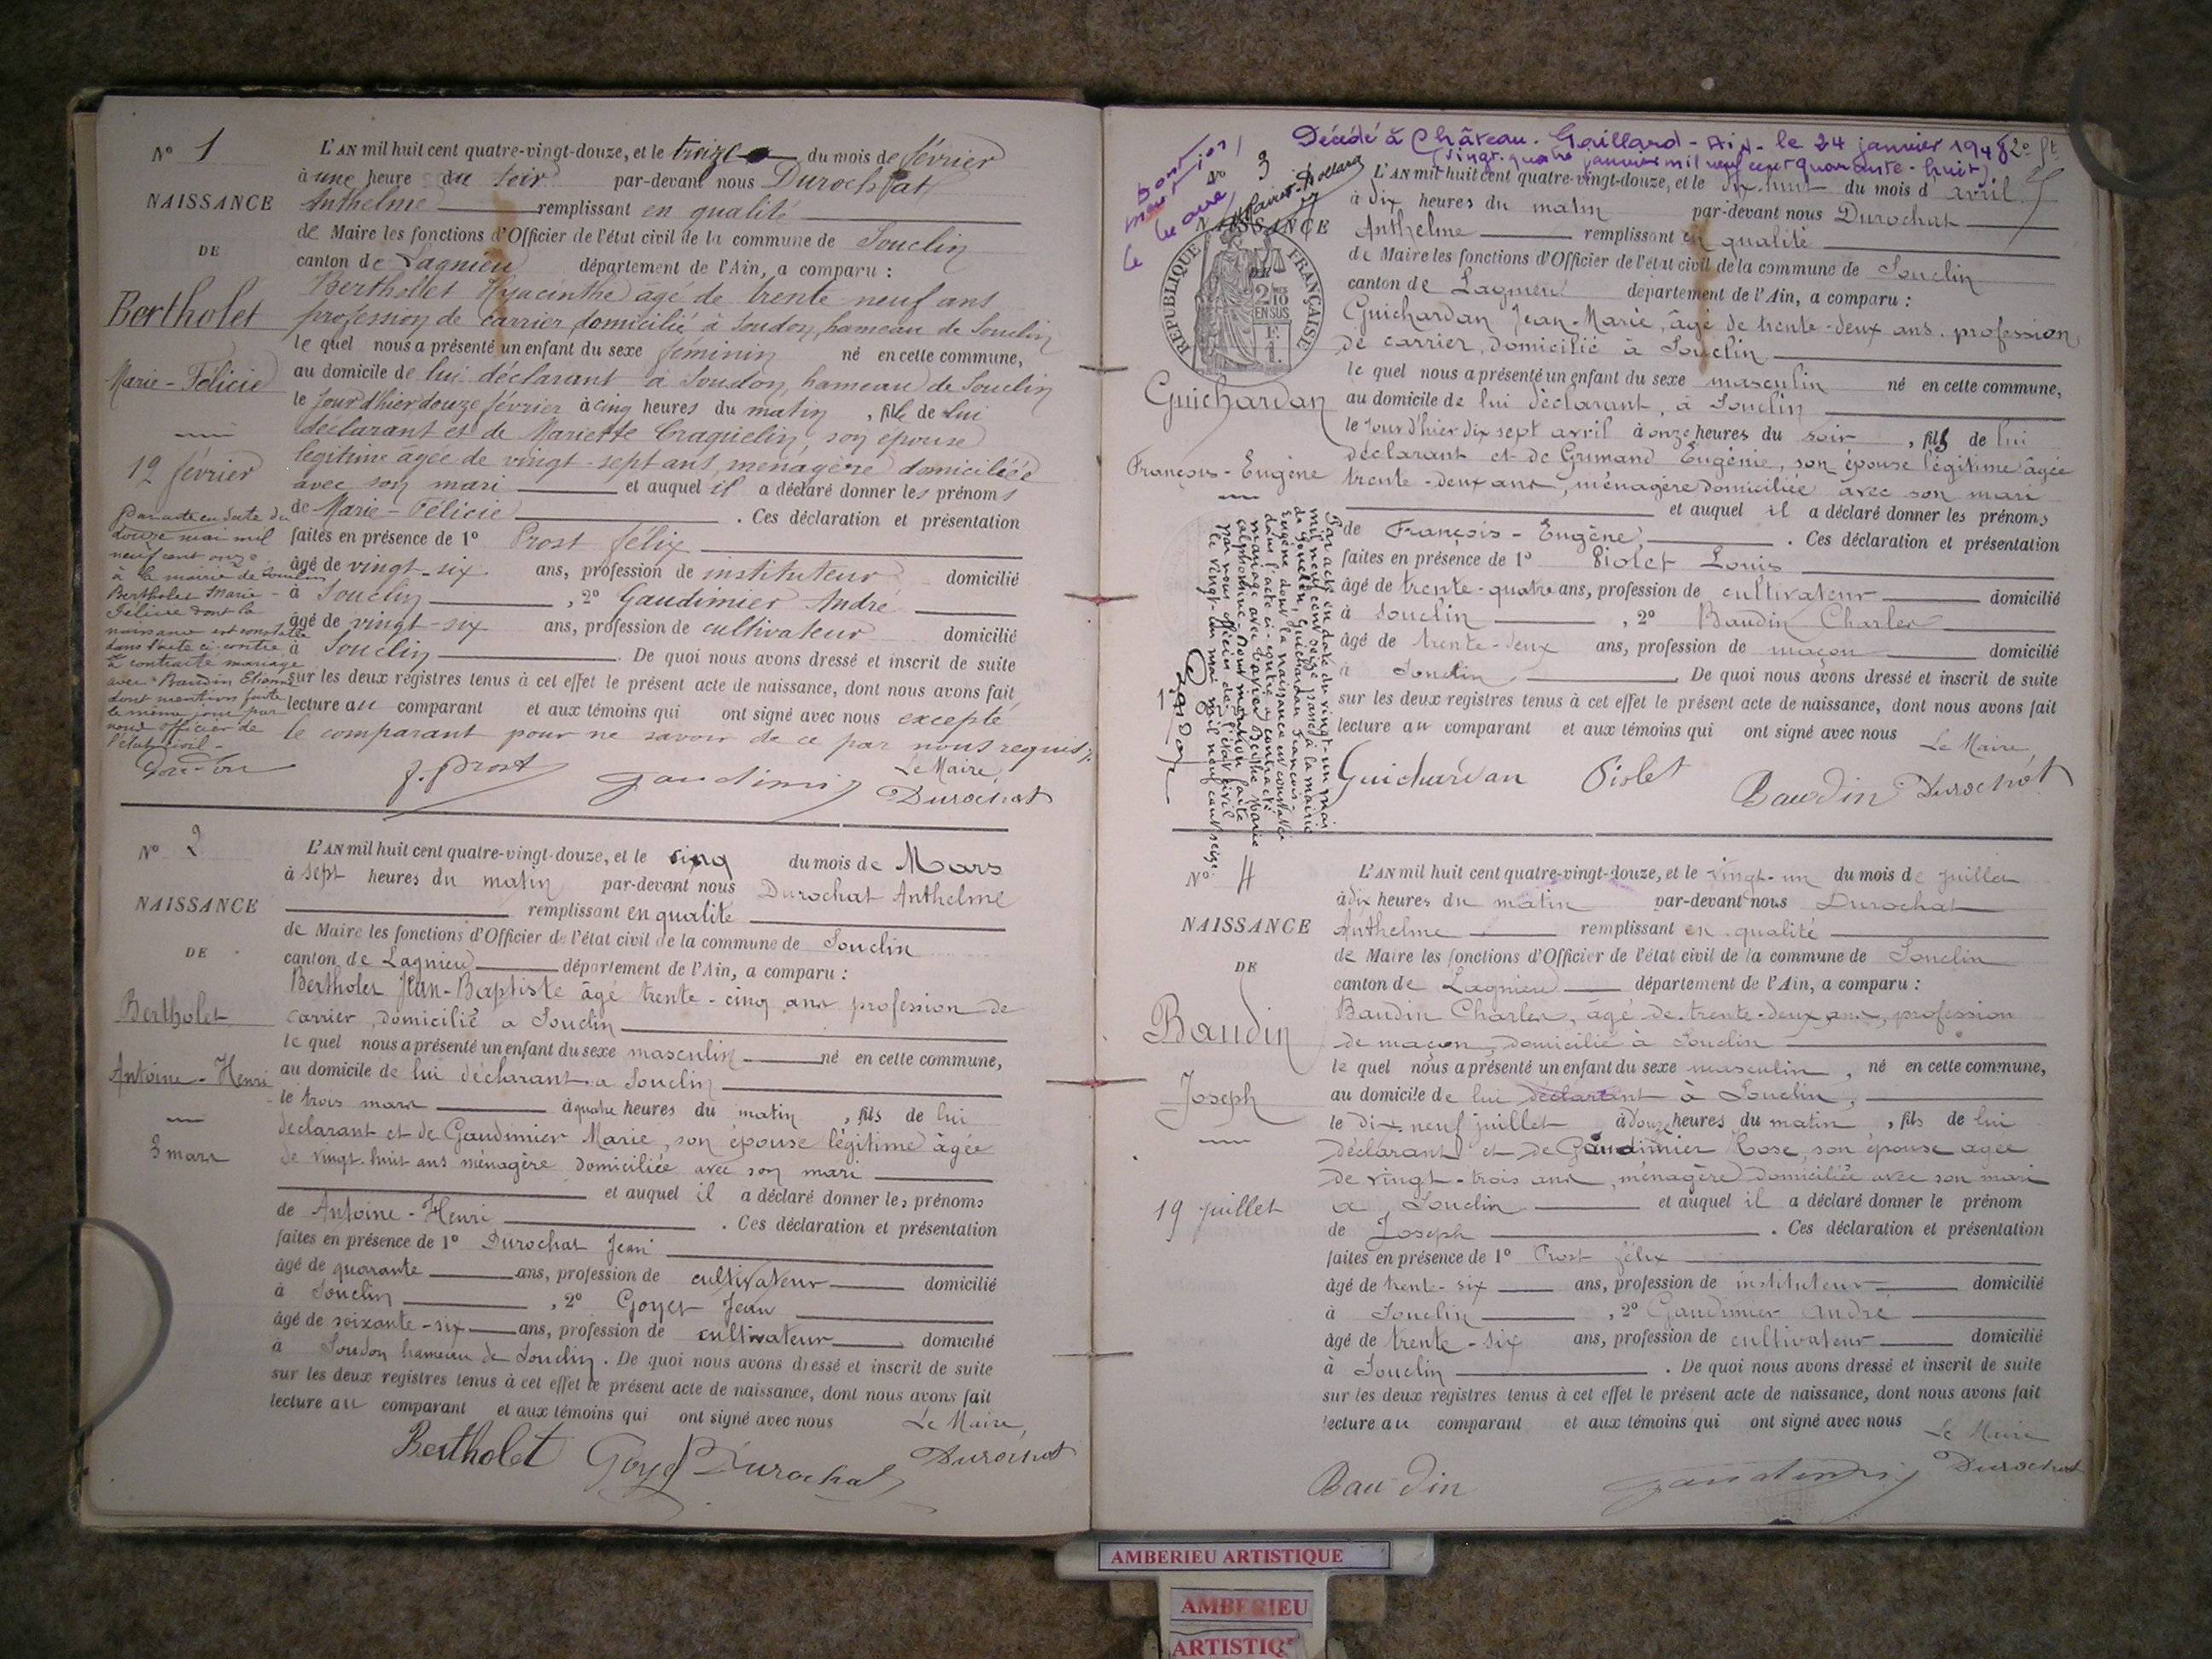 N° 1
NAISSANCE
DE
Bertholet
Marie-Félicie
12 février
Par acte en date du
douze mai mil
neuf cent onze
à la mairie de Souclin
Bertholet Marie-
Félicie dont la
naissance est constatée
dans l'acte ci-contre
a contracté mariage
avec Baudin Etienne
dont mention faite
le même jour par
nous officier de
l'état civil-
L'AN mil huit cent quatre-vingt-douze, et le treize du mois de février
à une heure du soir par-devant nous Durochat
Anthelme remplissant en qualité
de Maire les fonctions d'Officier de l'état civil de la commune de Souclin
canton de Lagnieu département de l'Ain, a comparu :
Berthollet Hyacinthe âgé de trente-neuf ans
profession de carrier domicilié à Soudon, hameau de Souclin
le quel nous a présenté un enfant du sexe féminin né en cette commune,
au domicile de lui déclarant à Soudon, hameau de Souclin
le jour d'hier douze février à cinq heures du matin, fille de lui
déclarant et de Mariette Craquelin, son épouse
légitime âgée de vingt-sept ans, ménagère domiciliée
avec son mari et auquel il a déclaré donner les prénoms
de Marie-Félicie. Ces déclaration et présentation
faites en présence de 1° Prost félix
âgé de vingt-six ans, profession de instituteur domicilié
à Souclin, 2° Gaudimier André
âgé de vingt-six ans, profession de cultivateur domicilié
à Souclin. De quoi nous avons dressé et inscrit de suite
sur les deux registres tenus à cet effet le présent acte de naissance, dont nous avons fait
lecture au comparant et aux témoins qui ont signé avec nous excepté
le comparant pour ne savoir de ce par nous requis
Le Maire,
f. Prost gaudimier Durochat
N° 2
NAISSANCE
DE
Bertholet
Antoine-Henri
3 mars
L'AN mil huit cent quatre-vingt-douze, et le cinq du mois de Mars
à sept heures du matin par-devant nous Durochat Anthelme
remplissant en qualité
de Maire les fonctions d'Officier de l'état civil de la commune de Souclin
canton de Lagnieu département de l'Ain, a comparu :
Bertholet Jean-Baptiste âgé trente-cinq ans profession de
carrier, domicilié a Souclin
le quel nous a présenté un enfant du sexe masculin né en cette commune,
au domicile de lui déclarant a Souclin
le trois mars à quatre heures du matin, fils de lui
declarant et de Gaudimier Marie, son épouse légitime âgée
de vingt-huit ans ménagère domiciliée avec son mari
et auquel il a déclaré donner les prénoms
de Antoine-Henri. Ces déclaration et présentation
faites en présence de 1° Durochat Jean
âgé de quarante ans, profession de cultivateur domicilié
à Souclin, 2° Goyet Jean
âgé de soixante-six ans, profession de cultivateur domicilié
à Soudon hameau de Souclin. De quoi nous avons dressé et inscrit de suite
sur les deux registres tenus à cet effet le présent acte de naissance, dont nous avons fait
lecture au comparant et aux témoins qui ont signé avec nous
Le Maire,
Bertholet Goyet Durochat Durochat
Décédé à Château-Gaillard-Ain-le 24 janvier 1948
(vingt-quatre janvier mil neuf cent quarante-huit)
2° ft
N° 3
NAISSANCE
DE
RÉPUBLIQUE FRANÇAISE
2/10 EN SUS
Guichardan
François-Eugène
Par acte en date du vingt-un mai
mil neuf cent seize passé à la mairie
de Souclin, Guichardan François-
Eugène dont la naissance est constatée
dans l'acte ci-contre a contracté
mariage avec Berthe Marie
dont mention faite
par nous officier de l'état civil
le vingt-un mai mil neuf cent seize
L'AN mil huit cent quatre-vingt-douze, et le dix-huit du mois d'avril
à dix heures du matin par-devant nous Durochat
Anthelme remplissant en qualité
de Maire les fonctions d'Officier de l'état civil de la commune de Souclin
canton de Lagnieu département de l'Ain, a comparu :
Guichardan Jean-Marie, âgé de trente-deux ans, profession
de carrier, domicilié à Souclin
le quel nous a présenté un enfant du sexe masculin né en cette commune,
au domicile de lui déclarant, à Souclin
le jour d'hier dix sept avril à onze heures du soir, fils de lui
déclarant et de Grimand Eugénie, son épouse légitime âgée
trente-deux ans, ménagère domiciliée avec son mari
et auquel il a déclaré donner les prénoms
de François-Eugène. Ces déclaration et présentation
faites en présence de 1° Piolet Louis
âgé de trente-quatre ans, profession de cultivateur domicilié
à Souclin, 2° Baudin Charles
âgé de trente-deux ans, profession de maçon domicilié
à Souclin. De quoi nous avons dressé et inscrit de suite
sur les deux registres tenus à cet effet le présent acte de naissance, dont nous avons fait
lecture au comparant et aux témoins qui ont signé avec nous
Le Maire,
Guichardan Piolet Baudin Durochat
N° 4
NAISSANCE
DE
Baudin
Joseph
19 juillet
L'AN mil huit cent quatre-vingt-douze, et le vingt-un du mois de juillet
à dix heures du matin par-devant nous Durochat
Anthelme remplissant en qualité
de Maire les fonctions d'Officier de l'état civil de la commune de Souclin
canton de Lagnieu département de l'Ain, a comparu :
Baudin Charles, âgé de trente-deux ans, profession
de maçon, domicilié à Souclin
le quel nous a présenté un enfant du sexe masculin, né en cette commune,
au domicile de lui déclarant à Souclin,
le dix neuf juillet à douze heures du matin, fils de lui
déclarant et de Gaudimier Rose, son épouse agée
de vingt-trois ans, ménagère domiciliée avec son mari
a Souclin et auquel il a déclaré donner le prénom
de Joseph. Ces déclaration et présentation
faites en présence de 1° Prost félix
âgé de trente-six ans, profession de instituteur domicilié
à Souclin, 2° Gaudimier André
âgé de trente-six ans, profession de cultivateur domicilié
à Souclin. De quoi nous avons dressé et inscrit de suite
sur les deux registres tenus à cet effet le présent acte de naissance, dont nous avons fait
lecture au comparant et aux témoins qui ont signé avec nous
Le Maire
Baudin gaudimier Durochat
AMBERIEU ARTISTIQUE
AMBERIEU
ARTISTIQ